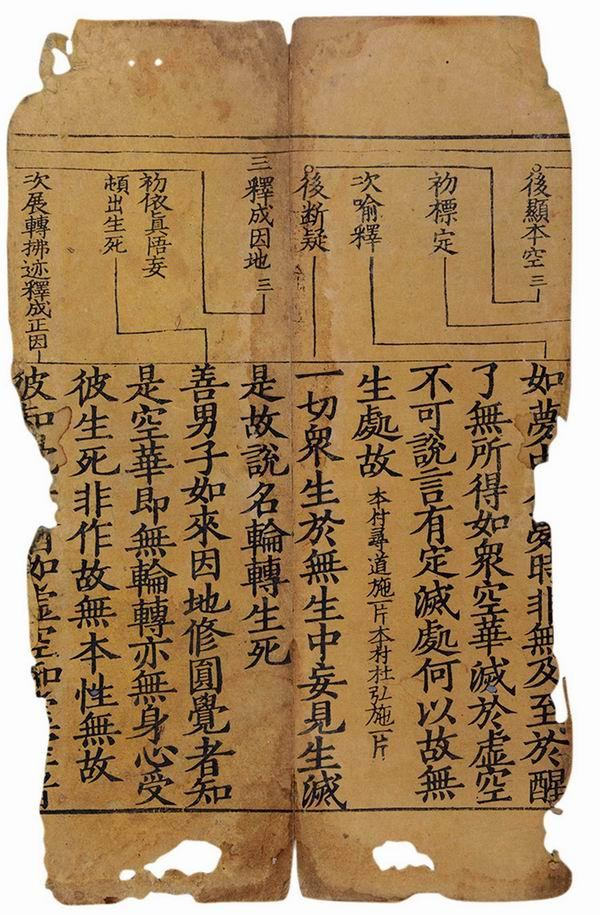 後顯本空 三
初標定
次喻釋
後断疑
三釋成因地 三
初依真悟妄
頓出生死
次展轉拂迹釋成正因
如夢時非無及至於醒
了無所得如衆空華滅於虚空
不可說言有定滅處何以故無
生處故 本村尋道施一片本村杜弘施一片
一切衆生於無生中妄見生滅
是故說名輪轉生死
善男子如來因地修圓覺者知
是空華即無輪轉亦無身心受
彼生死非作故無本性無故
彼知如虚空